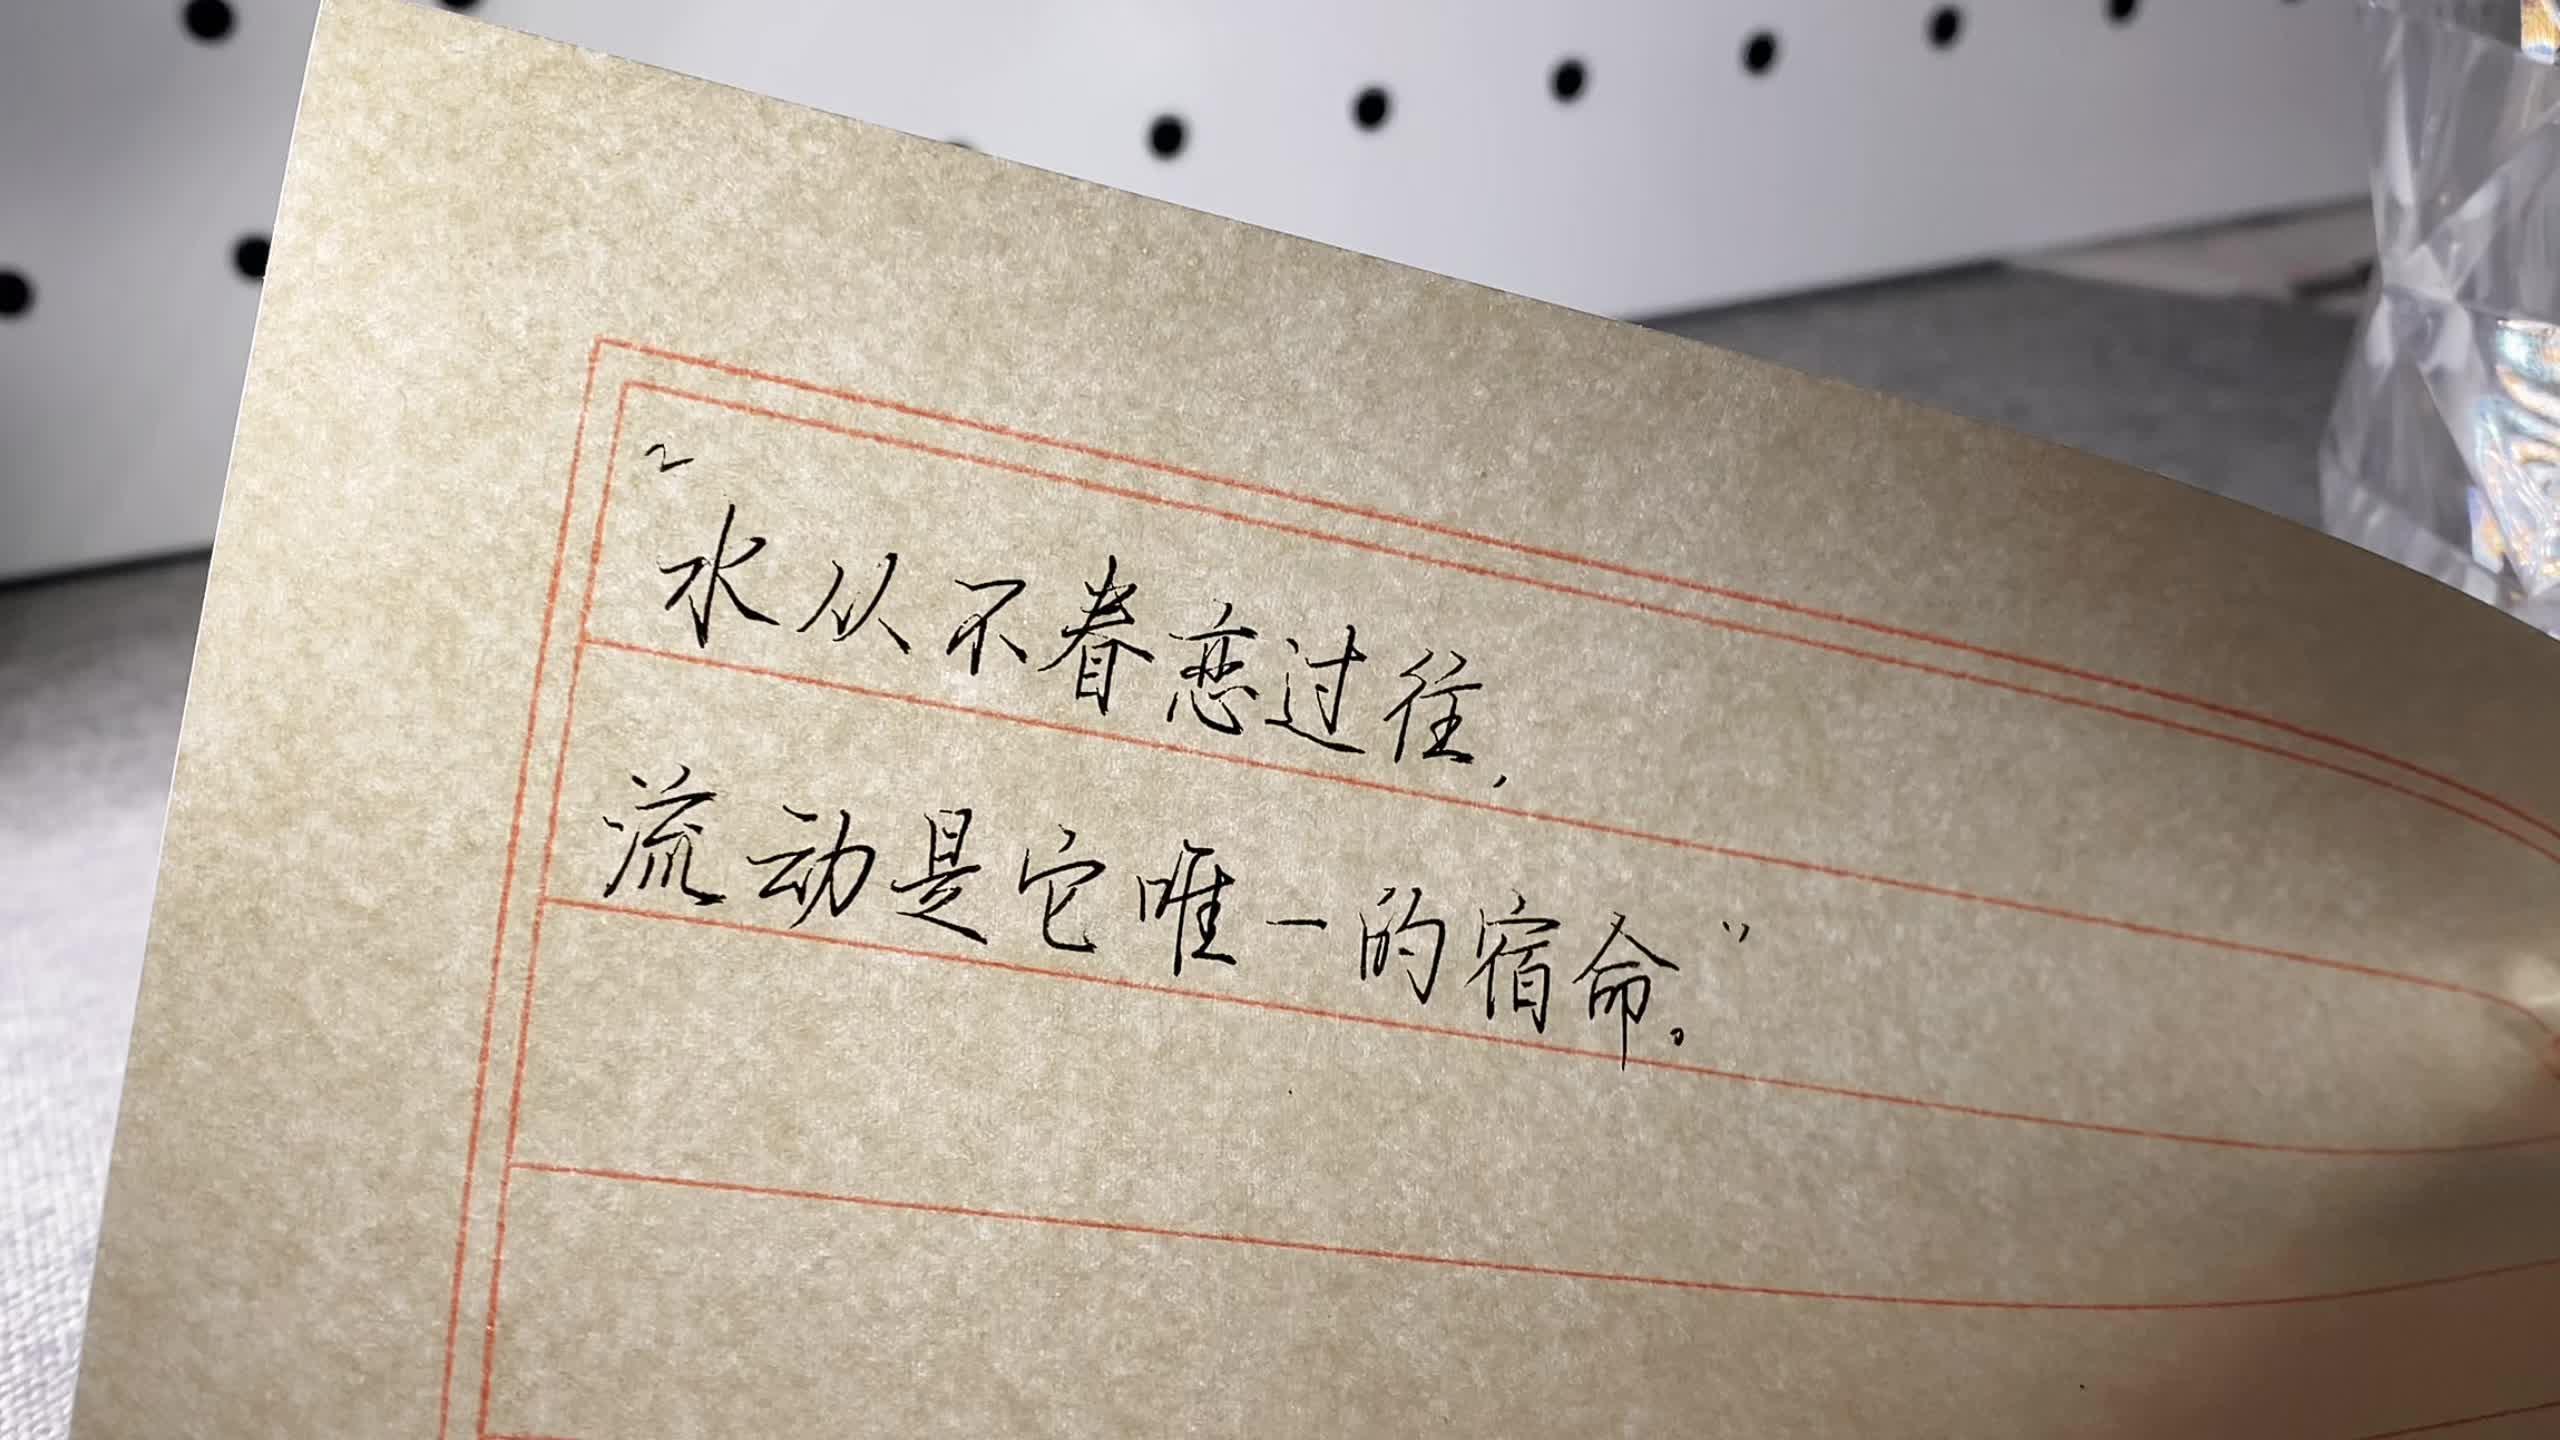 “水从不眷恋过往，
流动是它唯一的宿命。”